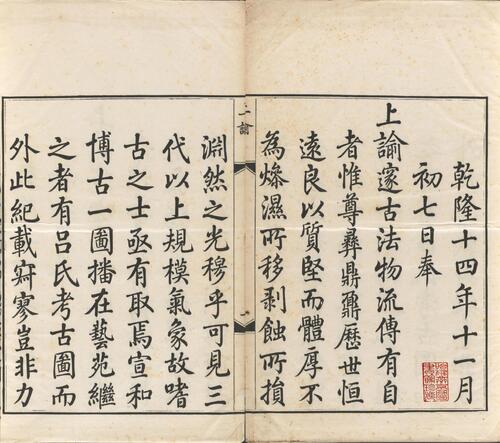 乾隆十四年十一月
初七日奉
上諭邃古法物流傳有自
者惟尊彝鼎鼐歷世恒
遠良以質堅而體厚不
為燥濕所移剥蝕所損
一諭
淵然之光穆乎可見三
代以上規模氣象故嗜
古之士亟有取焉宣和
博古一圖播在藝苑繼
之者有呂氏考古圖而
外此紀載寂寥豈非力